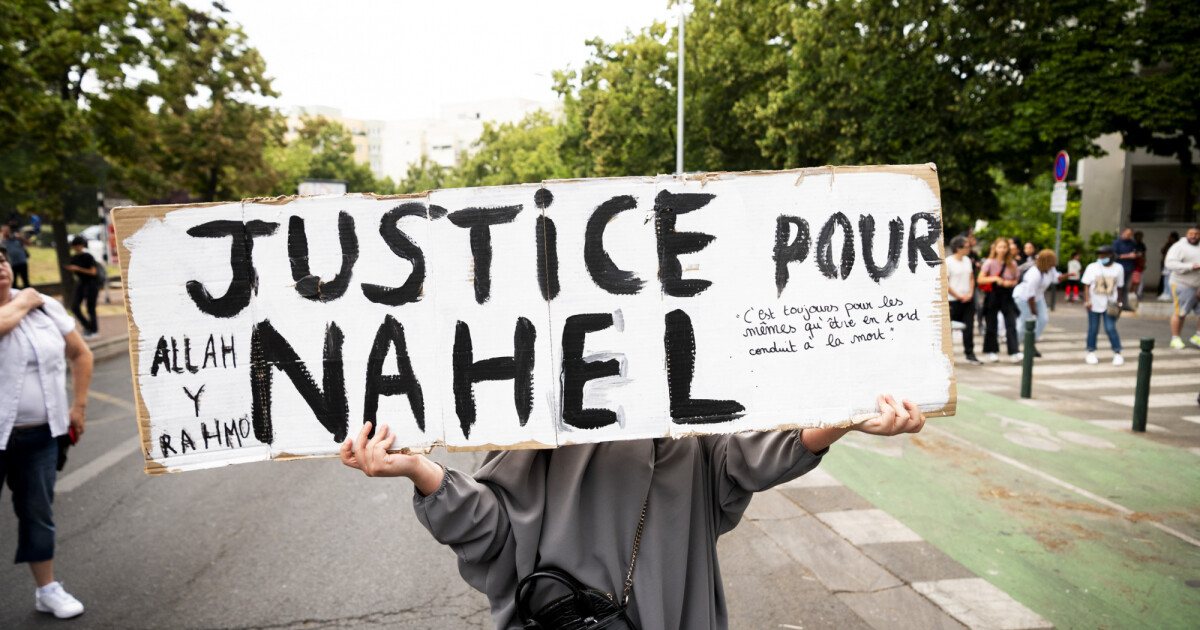 JUSTICE POUR
NAHEL
ALLAH
Y
RAHMO
"C'est toujours pour les
mêmes qu'être en tord
conduit à la mort"